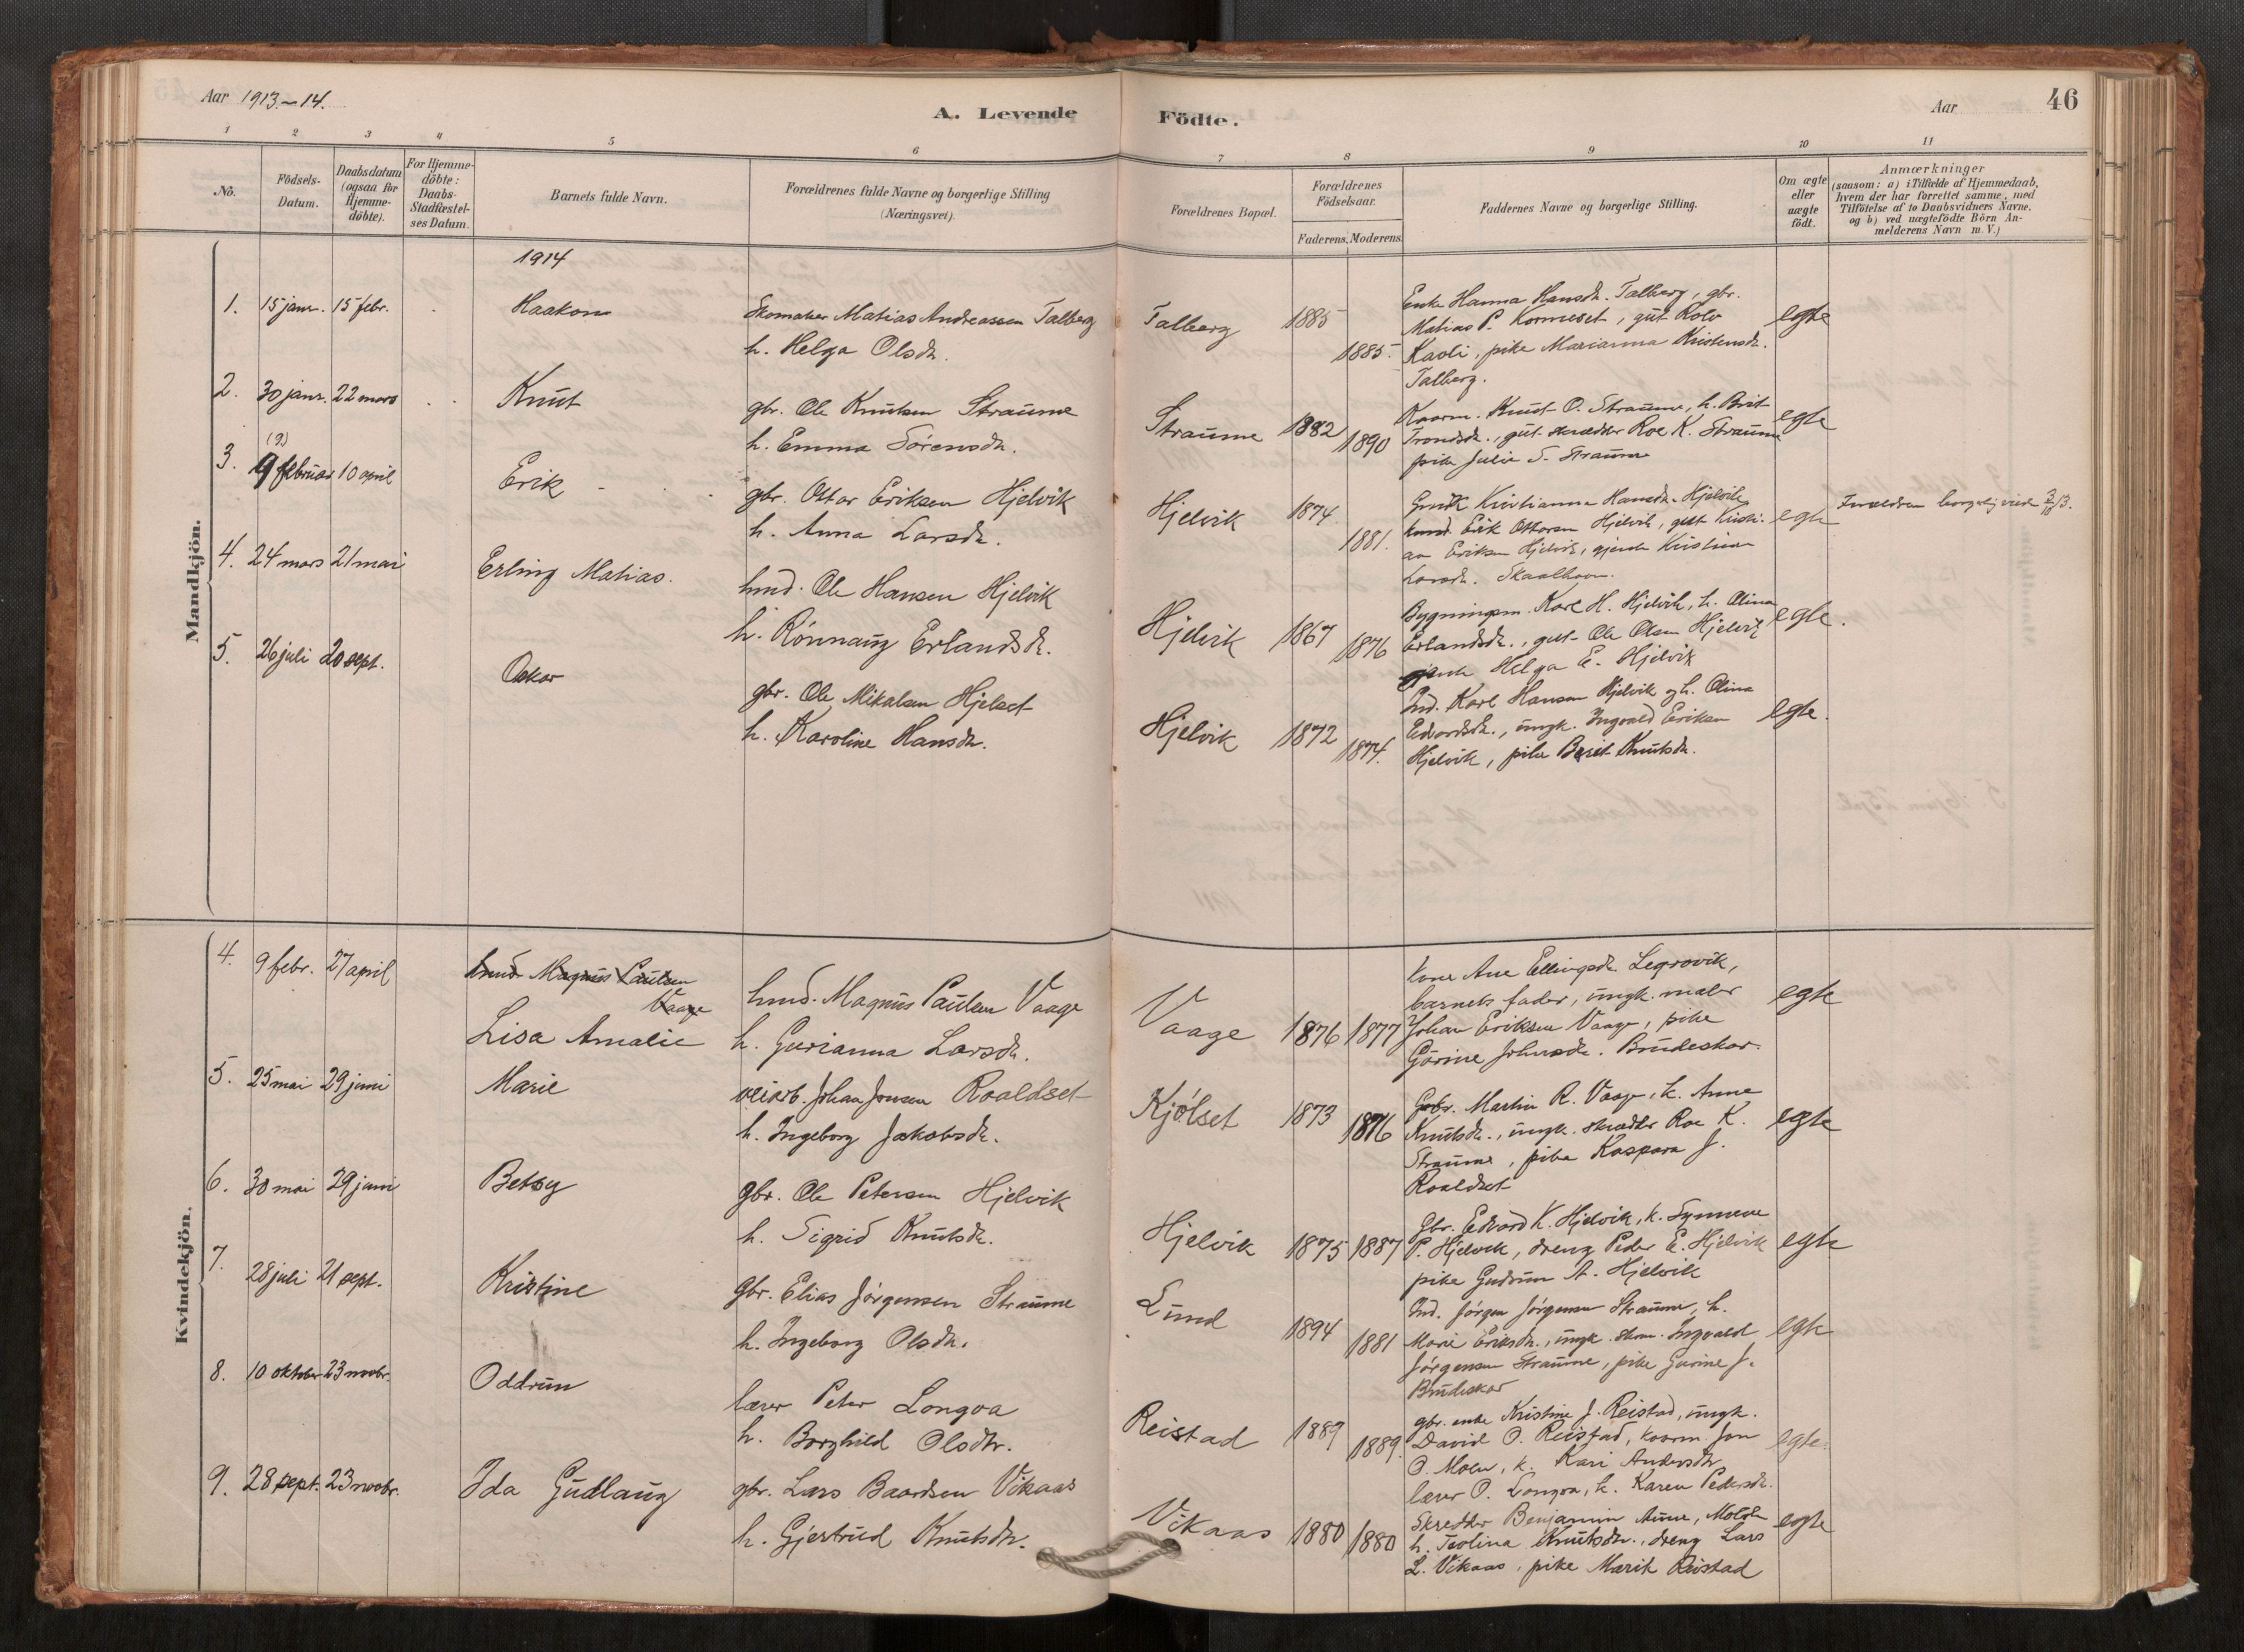 Aar 1913.-14.
A. Levende
Födte.
Aar
46
1 2 3 4 5 6 7 8 9 10 11
Nö.
Födsels-Datum.
Daabsdatum (ogsaa for Hjemme-döbte).
For Hjemme-döbte: Daabs-Stadfæstel-ses Datum.
Barnets fulde Navn.
Forældrenes fulde Navne og borgerlige Stilling (Næringsvei).
Forældrenes Bopæl.
Forældrenes Födselsaar.
Faderens. Moderens.
Faddernes Navne og borgerlige Stilling.
Om ægte eller uægte födt.
Anmærkninger
(saasom: a) i Tilfælde af Hjemmedaab, hvem der har forrettet samme, med Tilföielse af to Daabsvidners Navne, og b) ved uægtefödte Börn An-melderens Navn m. V.)
Mandkjön.
1914
1. 15 janr. 15 febr. Haakon
Skomaker Matias Andreassen Talberg
h. Helga Olsdr.
Talberg 1885 1885.
Enke Hanna Hansdr. Talberg, gbr.
Matias P. Kormeset, gut Rolv
Kavli, pike Marianna Kristensdr.
Talberg.
egte
2. 30 janr. 22 mars Knut
gbr. Ole Knutsen Straume
h. Emma Sörensdr.
Straume 1882 1890
Kaarm. Knut O. Straume, h. Brit
Trondsdr., gut skrædder Roe K. Straume
pike Julie S. Straume
egte
3. (9) 9 februar 10 april Erik
gbr. Ottar Eriksen Hjelvik
h. Anna Larsdr.
Hjelvik 1874 1881.
Kristianna Hansdr. Hjelvik,
Erik Ottarsen Hjelvik, gut Kristi-
an Eriksen Hjelvik, gjente Kristina
Larsdr. Skaalhavn.
egte
Forældrene borgerlig viede 3/10 13.
4. 24 mars 21 mai Erling Matias.
hmd. Ole Hansen Hjelvik
h. Rönnaug Erlandsdr.
Hjelvik 1867 1876
Bygningsm. Karl H. Hjelvik, h. Olina
Erlandsdr., gut Ole Olsen Hjelvik
gjente Helga E. Hjelvik
egte.
5. 26 juli 20 sept. Oskar
gbr. Ole Mikalsen Hjelset
h. Karoline Hansdr.
Hjelvik 1872 1874.
Ind. Karl Hansen Hjelvik og h. Olina
Edvardsdr., ungk. Ingvald Eriksen
Hjelvik, pike Beret Knutsdr.
egte.
Kvindekjön.
4. 9 febr. 27 april hmd. Magnus Paulsen
Vaage
Lisa Amalie
hmd. Magnus Paulsen Vaage
h. Gurianna Larsdr.
Vaage 1876 1877
Kone Ane Ellingsdr. Legrovik,
barnets fader, ungk. maler
Johan Eriksen Vaage, pike
Gurine Johnsdr. Brudeskar.
egte
5. 25 mai 29 juni Marie
veiarb. Johan Jonsen Roaldset
h. Ingeborg Jakobsdr.
Kjölset 1873 1876
Gbr. Martin R. Vaage, h. Anne
Knutsdr., ungk. skrædder Roe K.
Straume, pike Kaspara J.
Roaldset
egte
6. 30 mai 29 juni Betsy
gbr. Ole Petersen Hjelvik
h. Sigrid Knutsdr.
Hjelvik 1875 1887
Gbr. Edvard K. Hjelvik, k. Synneve
P. Hjelvik, dreng Peder E. Hjelvik
pike Gudrun A. Hjelvik
egte
7. 28 juli 21 sept. Kristine
Gbr. Elias Jörgensen Straume
h. Ingeborg Olsdr.
Lund 1894 1881
Ind. Jörgen Jörgensen Straume, h.
Marie Eriksdr., ungk. skom. Ingvald
Jörgensen Straume, pike Gurine J.
Brudeskar
egte
8. 10 oktober 23 novbr. Oddrun
lærer Peter Longva
h. Borghild Olsdtr.
Reistad 1889 1889.
gbr. enke Kristine J. Reistad, ungk.
David O. Reistad, kaarm. Jon
O. Moen, k. Kari Andersdtr
lærer O. Longva, h. Karen Pedersdr.
egte.
9. 28 sept. 23 novbr. Ida Gudlaug
gbr. Lars Baardsen Vikaas
h. Gjertrud Knutsdtr.
Vikaas 1880 1880
Skredder Benjamin Aune, Molde
h. Tolina Knutsdtr., dreng Lars
L. Vikaas, pike Marit Reistad
egte